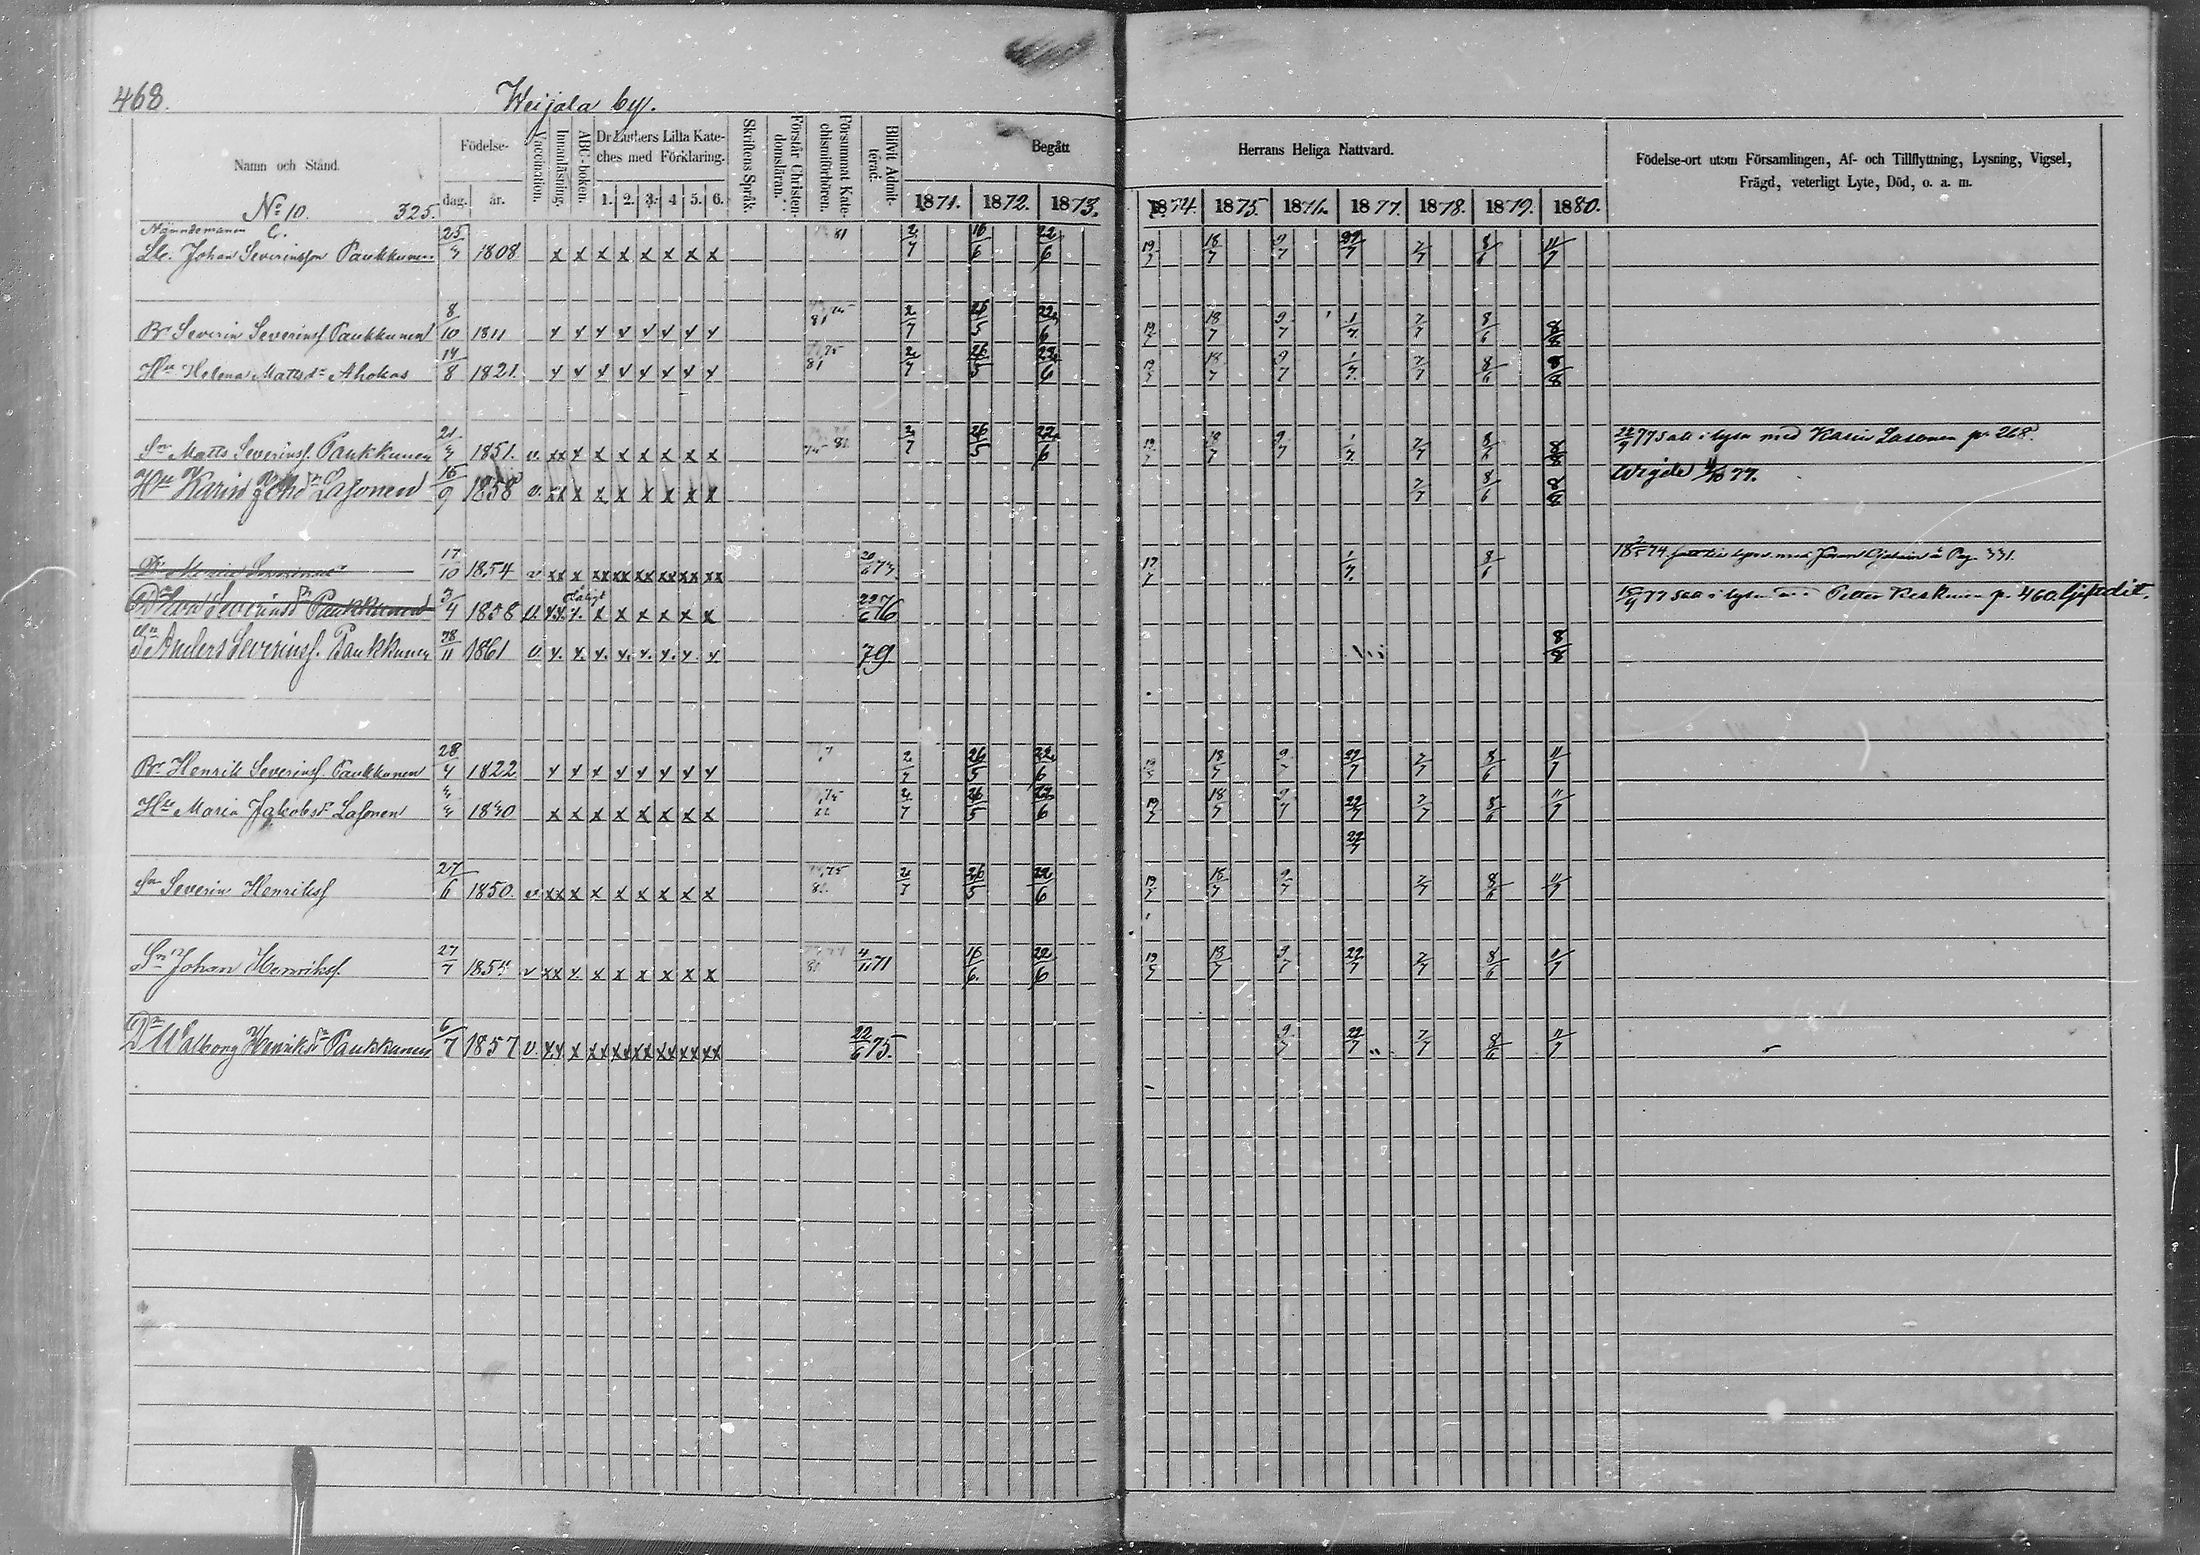 468.
Weijala by.
Namn och Stånd.
Födelse-
dag. år.
Vaccination.
Innanläsning.
ABC-boken.
Dr Luthers Lilla Kate-
ches med Förklaring.
1. 2. 3. 4 5. 6.
Skriftens Språk.
Förstår Christen-
domsläran.
Försummat Kate-
chismiförhören.
Blifvit Admit-
terad.
Begått Herrans Heliga Nattvard.
1871. 1872. 1873. 1874. 1875. 1876. 1877. 1878. 1879. 1880.
Födelse-ort utom Församlingen, Af- och Tillflyttning, Lysning, Vigsel,
Frägd, veterligt Lyte, Död, o. a. m.
No 10. 325.
Nämndemannen
Johan Severinsson Paukkunen 1808 x x x x x x x x 81 2/7 16/6 22/6 19/7 18/7 9/7 22/7 7/7 8/6 11/7
Br Severin Severinss. Paukkunen 8/10 1811 x x x x x x x x 81 2/7 26/5 22/6 19/7 18/7 9/7 1/7 7/7 8/6 8/8
Hu Helena Mattsdr Ahokas 14/8 1821 x x x x x x x x 75 81 2/7 26/5 22/6 19/7 18/7 9/7 1/7 7/7 8/6 8/8
Sn Matts Severinss. Paukkunen 1851. v. xx x x x x x x x 2/7 26/5 22/6 19/7 18/7 9/7 1/7 7/7 8/6 8/8 77 satt i lysn med Karin Lasonen p. 268.
Hu Karin Lasonen 16/9 1858 v. xx x x x x x x x 7/7 8/6 8/8 Wigde 77.
Dr Maria Severinsdr 17/10 1854 v xx x xx xx xx xx xx xx 19/7 1/7 8/6 74 Pag. 331.
Dr Eva Severinsdr Paukkunen 3/4 1858 v. xx. x. x x x x x x 22/6 76 77 satt i lysn Petter p. 460. gift dit.
Sn Anders Severinss. Paukkunen 28/11 1861 v. x. x. x. x. x. x. x. x 79 8/8
Br Henrik Severinss. Paukkunen 28/4 1822 x x x x x x x x 2/7 26/5 22/6 19/7 18/7 9/7 22/7 7/7 8/6 11/7
Hu Maria Jakobsdr Lasonen x x x x x x x x 75 2/7 26/5 22/6 19/7 18/7 9/7 22/7 7/7 8/6 11/7
22/7
Sn Severin Henrikss 27/6 1850. v xx x x x x x x x 75 2/7 26/5 22/6 19/7 18/7 9/7 7/7 8/6 11/7
Sn Johan Henrikss. 27/7 1854 v xx x. x x x x x x 71 16/6. 22/6 19/7 18/7 9/7 22/7 7/7 8/6 11/7
Dr Walborg Henriksdr Paukkunen 6/7 1857 v. xx x xx xx xx xx xx xx 22/6 75. 9/7 22/7 7/7 8/6 11/7